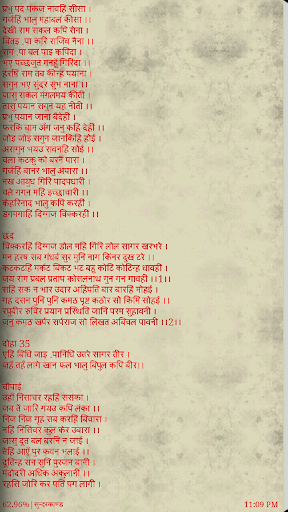 प्रभु पद पंकज नावहिं सीसा ।
गर्जहिं भालु महाबल कीसा ।।
देखी राम सकल कपि सेना ।
चितइ पा करि राजिव नैना ।।
राम पा बल पाइ कपिंदा ।
भए पच्छजुत मनहुँ गिरिंदा ।।
हरषि राम तब कीन्ह पयाना ।
सगुन भए सुंदर सुभ नाना ।।
जासु सकल मंगलमय कीती ।
तासु पयान सगुन यह नीती ।।
प्रभु पयान जाना बैदेहीं ।
फरकि बाम अँग जनु कहि देहीं ।।
जोइ जोइ सगुन जानकिहि होई ।
असगुन भयउ रावनहि सोई ।।
चला कटकु को बरनैं पारा ।
गर्जहिं बानर भालु अपारा ।।
नख आयुध गिरि पादपधारी ।
चले गगन महि इच्छाचारी ।।
केहरिनाद भालु कपि करहीं ।
डगमगाहिं दिग्गज चिक्करहीं ।।
छंद
चिक्करहिं दिग्गज डोल महि गिरि लोल सागर खरभरे ।
मन हरष सब गंधर्ब सुर मुनि नाग किन्नर दुख टरे ।।
कटकटहिं मर्कट बिकट भट बहु कोटि कोटिन्ह धावहीं ।
जय राम प्रबल प्रताप कोसलनाथ गुन गन गावहीं ।।1।।
सहि सक न भार उदार अहिपति बार बारहिं मोहई ।
गह दसन पुनि पुनि कमठ पृष्ट कठोर सो किमि सोहई ।।
रघुबीर रुचिर प्रयान प्रस्थिति जानि परम सुहावनी ।
जनु कमठ खर्पर सर्पराज सो लिखत अबिचल पावनी ।।2।।
दोहा 35
एहि बिधि जाइ पानिधि उतरे सागर तीर ।
जहँ तहँ लागे खान फल भालु बिपुल कपि बीर।।
चौपाई
उहाँ निसाचर रहहिं ससंका ।
जब तें जारि गयउ कपि लंका ।।
निज निज गृह सब करहिं बिचारा ।
नहिं निसिचर कुल केर उबारा ।।
जासु दूत बल बरनि न जाई ।
तेहि आएँ पुर कवन भलाई ।।
दूतिन्ह सन सुनि पुरजन बानी ।
मंदोदरी अधिक अकुलानी ।।
रहसि जोरि कर पति पग लागी ।
62.96% | सुन्दरकाण्ड
11:09 PM